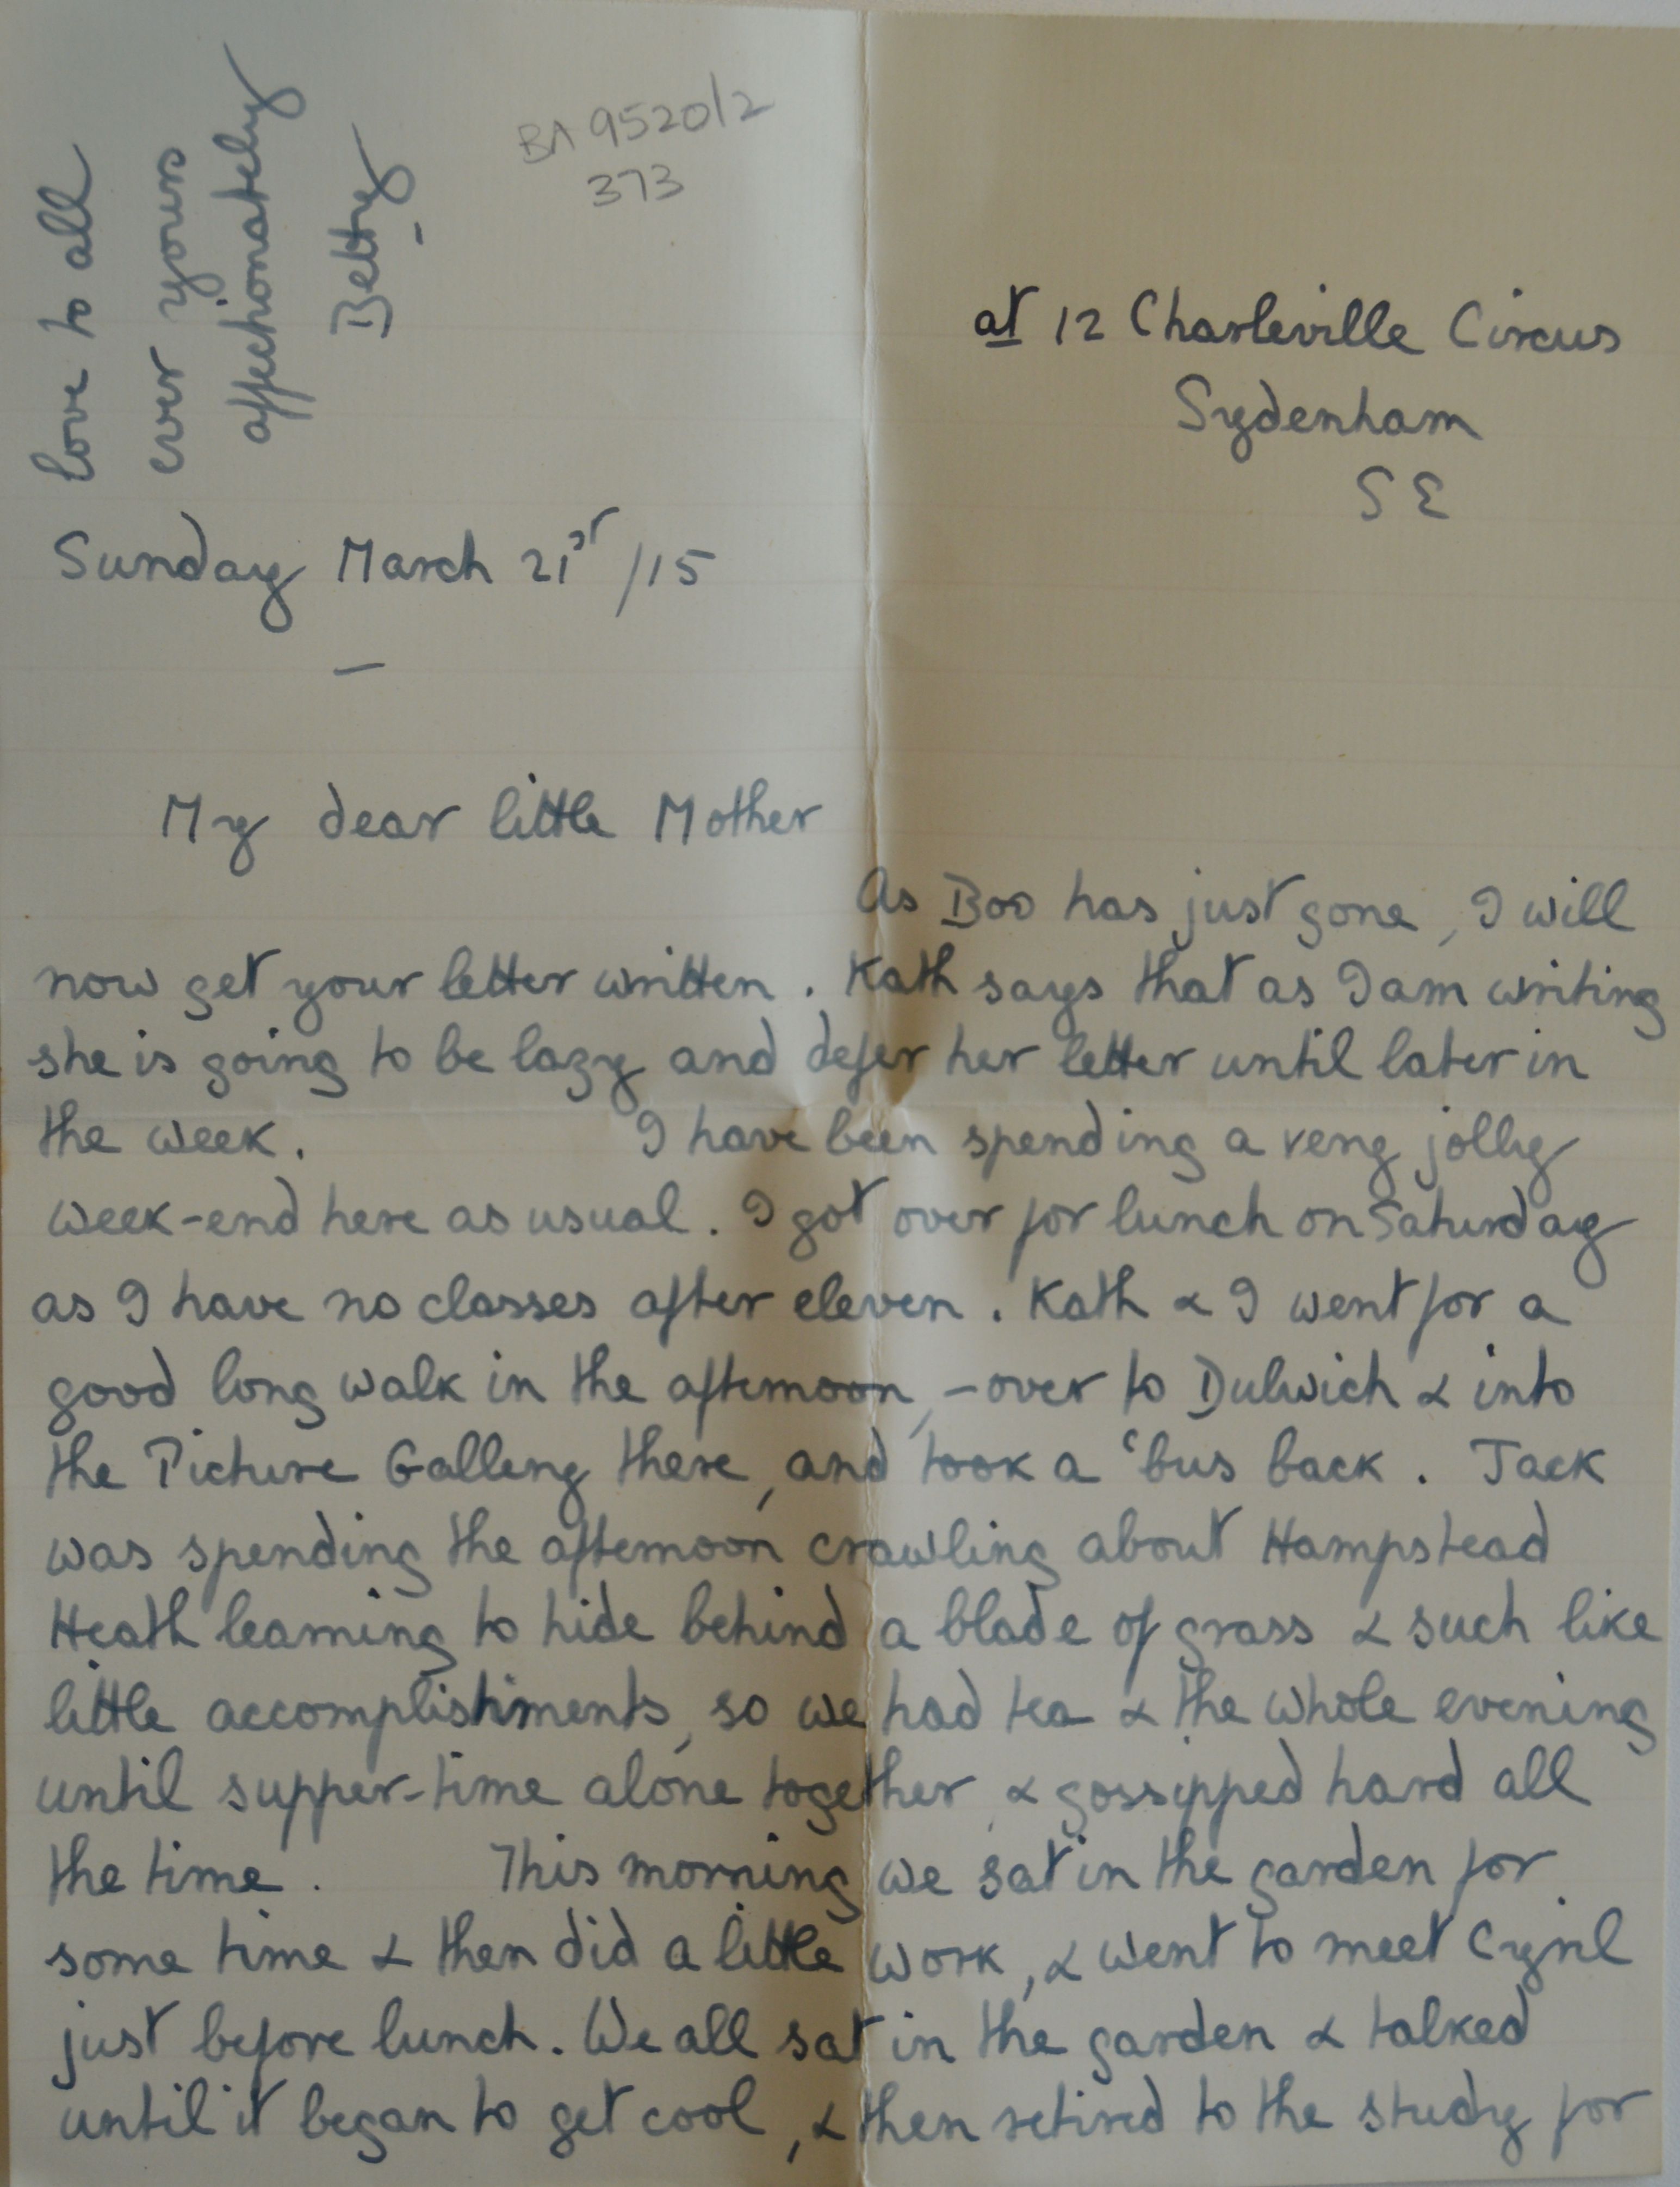 love to all
ever yours
affectionately
Betty -
BA 9520/2
373
at 12 Charleville Circus
Sydenham
SE
Sunday March 21st /15
—
My dear little Mother
As Boo has just gone, I will
now get your letter written. Kath says that as I am writing
she is going to be lazy and defer her letter until later in
the week. I have been spending a very jolly
week-end here as usual. I got over for lunch on Saturday
as I have no classes after eleven. Kath & I went for a
good long walk in the afternoon, - over to Dulwich & into
the Picture Gallery there, and took a 'bus back. Jack
was spending the afternoon crawling about Hampstead
Heath learning to hide behind a blade of grass & such like
little accomplishments, so we had tea & the whole evening
until supper-time alone together, & gossipped hard all
the time. This morning we sat in the garden for
some time & then did a little work, & went to meet Cyril
just before lunch. We all sat in the garden & talked
until it began to get cool, & then retired to the study for